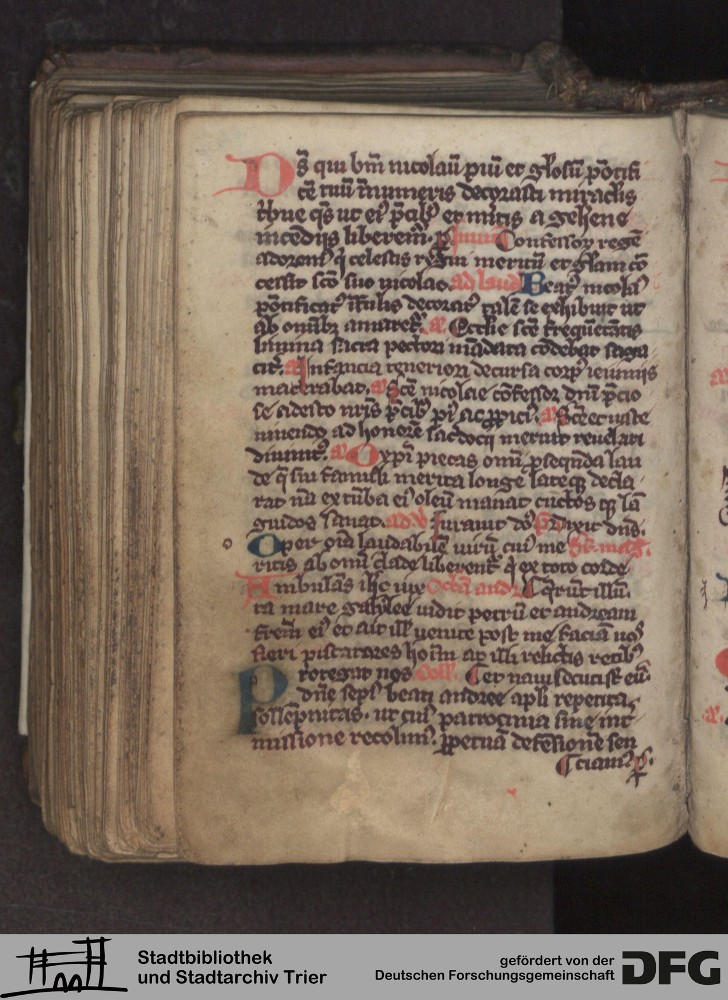 Ds qui bm nicolaū piū et glosū pōtifi
cē tuū īnumeris decorasti miraclis
tbue qs ut ei' pcib' et mitis a gehene
incendijs liberem.
adorem' celestis regni et glam cō
cessit sco suo nicolao. ad laud Beat' nicola'
pōtificat' īfulis decorat' talē se exhibuit ut
ab omīb; amaret. a Ecclie scē frequētās
limina sacra pectori mādata cōdebat saga
cit. a Infancia teneriori decursa corp' ieiuniis
macerabat. a Scē nicolae cōfessor dnī pcio
se adesto nris pcib' pi' ac ppici'. a
ad honorē sacdocij meruit revelari
divinit'. a O xpi pietas omī psequnda lau
de q sui famuli merita longe lateq; decla
rat nā ex tūba ei' oleū manat cūctos q; lā
guidos sanat. ad v Iuravit ds Dixit dns.
O per oīa laudabilē virū cui' me mag.
ritis ab omī clade liberent' q ex toto corde
Ambulās ihc iux andr
ta mare galilee vidit petrū et andream
frem ei' et ait ill' venite post me faciā vos
fieri piscatores hoīm at illi relictis retib'
Protegat nos Coll. et navi secuti st eū.
dne seps beati andree apli repetita
sollēpnitas. ut cui' patrocinia sine int
missione recolim'. ppetuā defēsionē sen
ciam'. p.
Stadtbibliothek
und Stadtarchiv Trier
gefördert von der
Deutschen Forschungsgemeinschaft
DFG